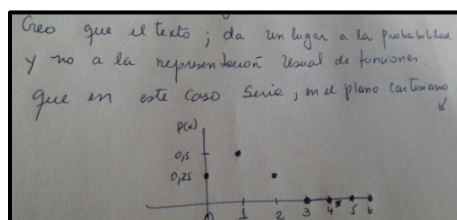 Creo que el texto; da un lugar a la probabilidad
y no a la representación usual de funciones.
que en este caso seria, en el plano cartesiano
P(x)
0,5
0,25
0 1 2 3 4 5 6